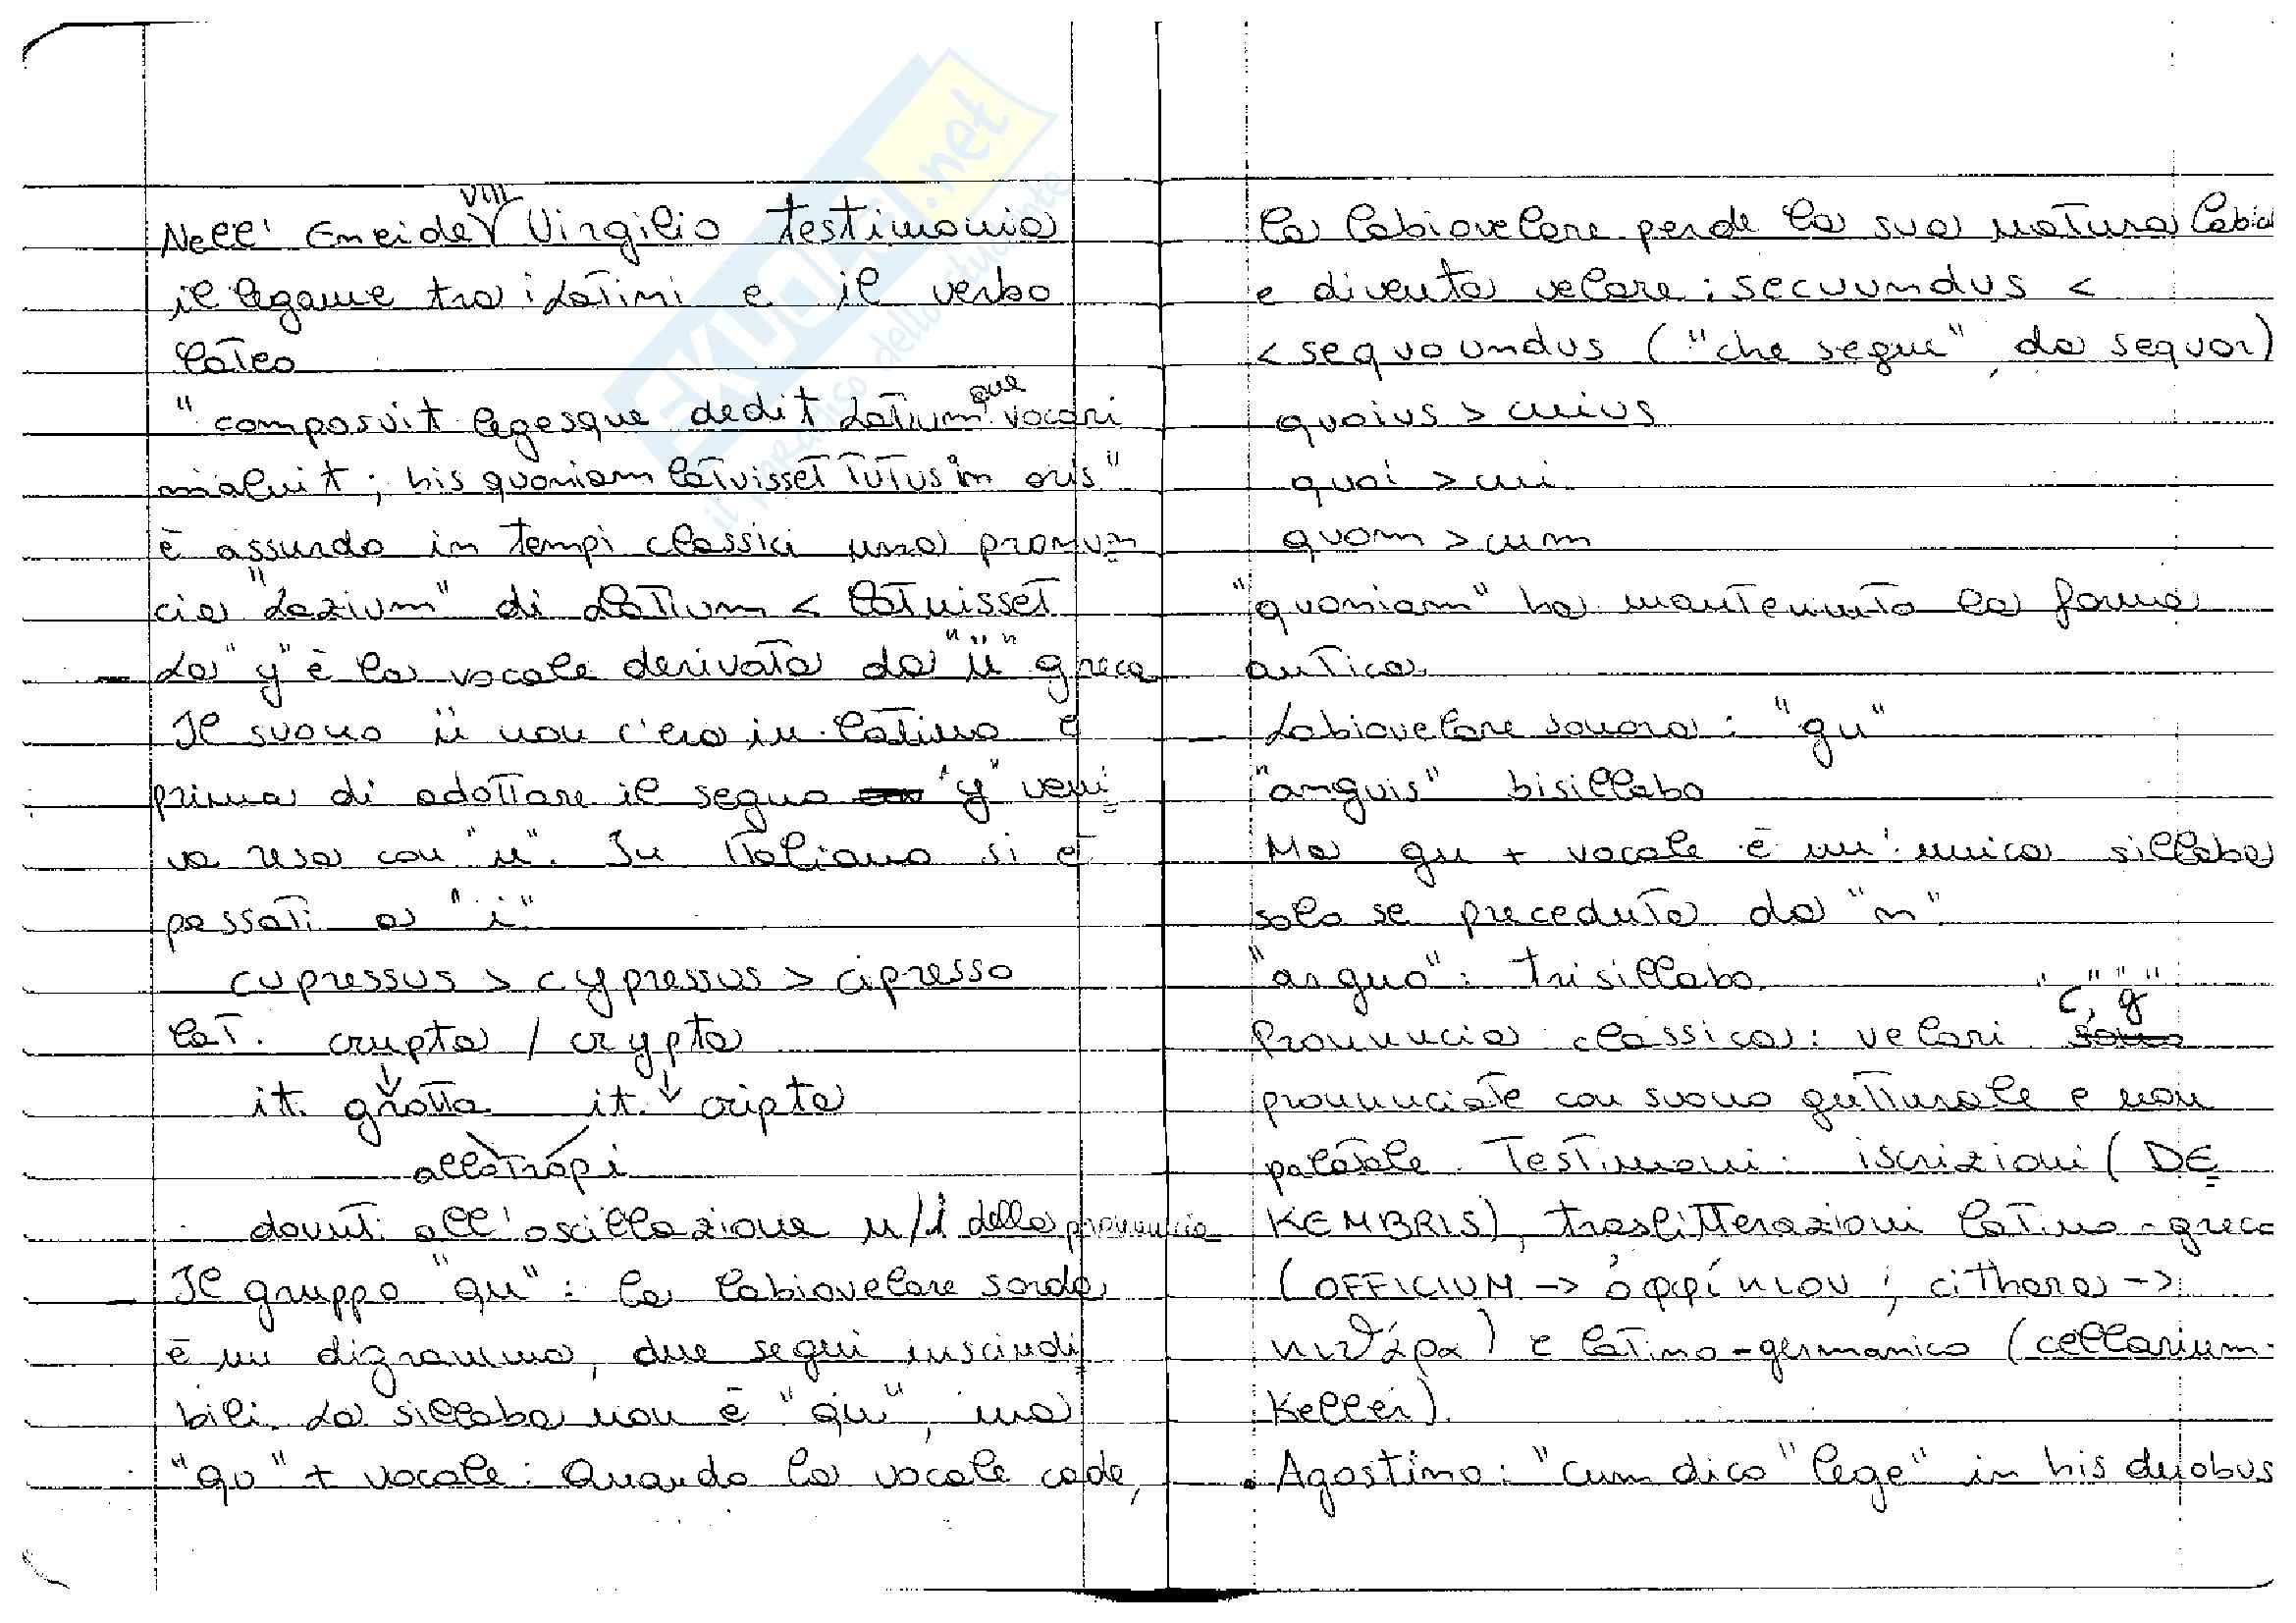 Nell' Eneide VIII Virgilio testimonia
il legame tra i Latini e il verbo
lateo
"composuit legesque dedit Latiumque vocari
maluit; his quoniam latuisset tutus in oris"
è assurda in tempi classici una pronun
cia "Lazium" di Latium < latuisset
- La "y" è la vocale derivata da "ü" greca
Il suono ü non c'era in latino e
prima di adottare il segno "y" veni
va resa con "u". In Italiano si è
passati a "i"
cupressus > cypressus > cipresso
lat. crupta / crypta
it. grotta it. cripta
allotropi
dovuti all'oscillazione u/i della pronuncia
- Il gruppo "qu": la labiovelare sorda
è un digramma, due segni inscindi
bili. La sillaba non è "qu", ma
"qu" + vocale. Quando la vocale cade,
la labiovelare perde la sua natura labial
e diventa velare: secuundus <
< sequoundus ("che segue", da sequor)
quoius > cuius
quoi > cui
quom > cum
"quoniam" ha mantenuto la forma
antica
- Labiovelare sonora: "gu"
"anguis" bisillabo
Ma gu + vocale è un'unica sillaba
solo se preceduta da "n"
"arguo": trisillabo
Pronuncia classica: velari "c", "g"
pronunciate con suono gutturale e non
palatale. Testimoni: iscrizioni (DE
KEMBRIS), traslitterazioni latino-greca
(OFFICIUM -> ὀφφίκιον; cithara ->
κιθάρα) e latino-germanico (cellarium-
Keller).
• Agostino: "Cum dico "lege" in his duobus
SKUOLA.net
il paradiso dello studente